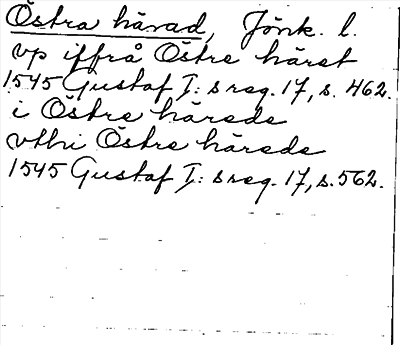 Östra härad, Jönk. l.
vp iffrå Östre häret
1545 Gustaf I: s reg. 17, s. 462.
i Östre härede
vthi Östre härede
1545 Gustaf I: s reg. 17, s. 562.